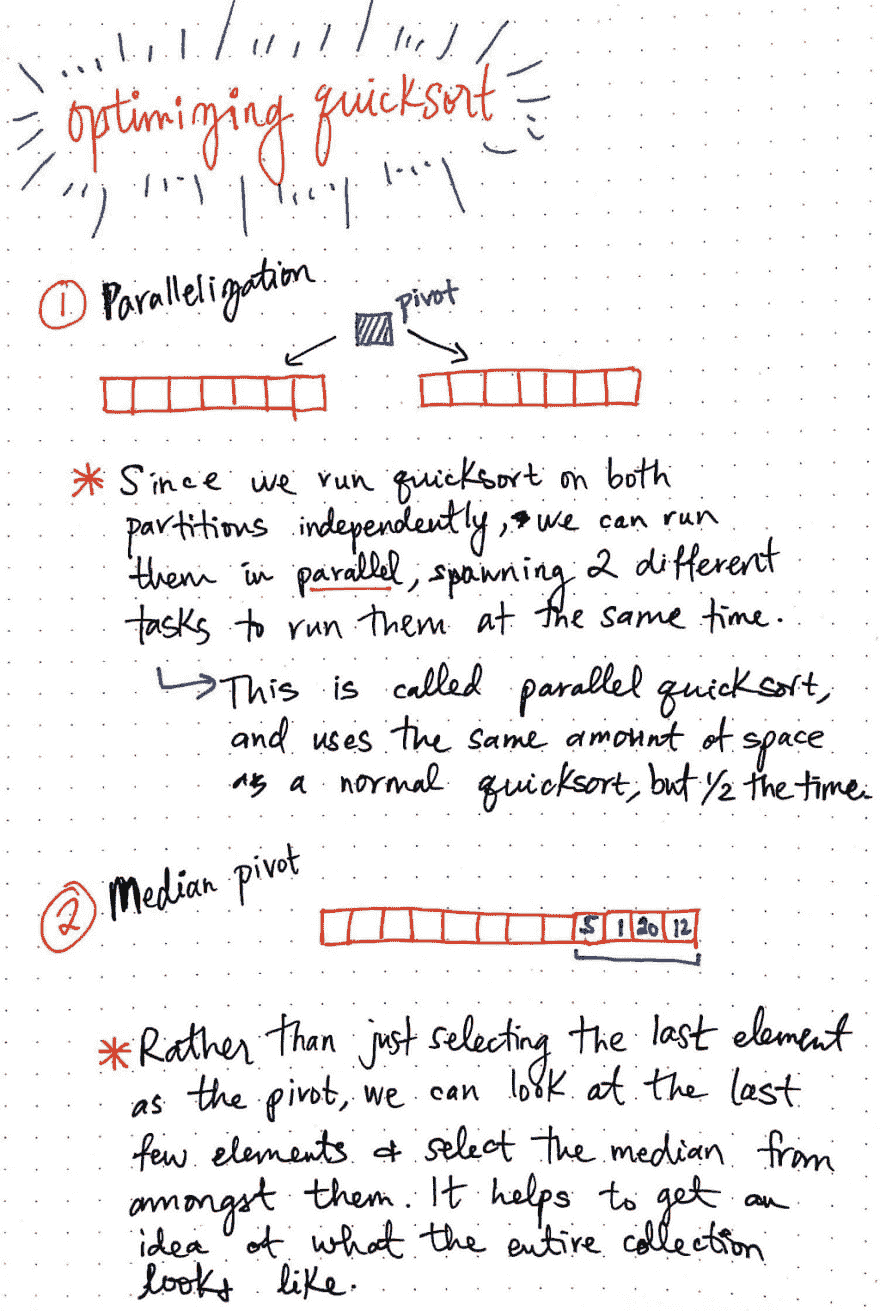 optimizing quicksort
1 Parallelization
pivot
* Since we run quicksort on both
partitions independently, we can run
them in parallel, spawning 2 different
tasks to run them at the same time.
↳ This is called parallel quicksort,
and uses the same amount of space
as a normal quicksort, but 1/2 the time.
2 Median pivot
5 1 20 12
* Rather than just selecting the last element
as the pivot, we can look at the last
few elements & select the median from
amongst them. It helps to get an
idea of what the entire collection
looks like.